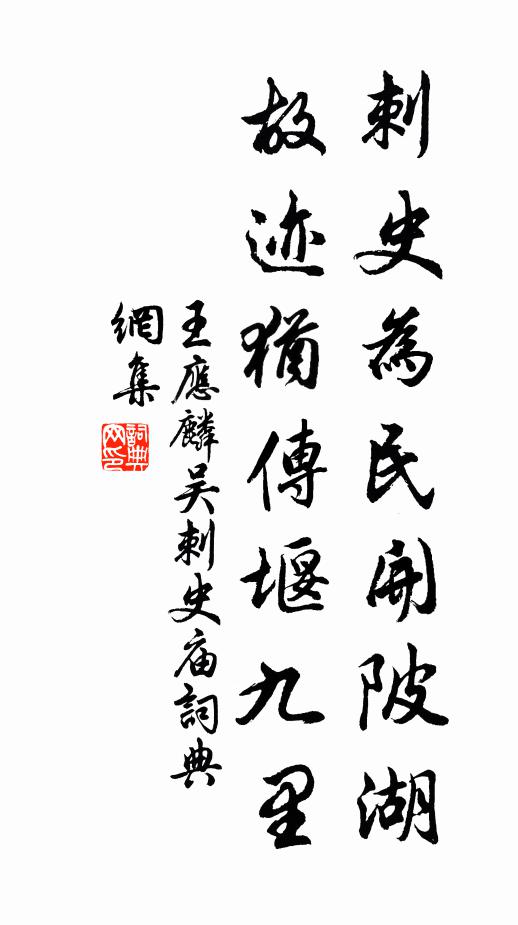 刺史為民開陂湖
故迹猶傳堰九里
王應麟吴刺史庙詞典
網集
詞典网印